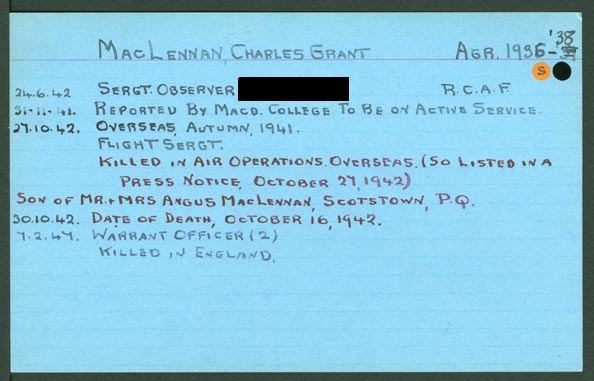 MacLennan, Charles Grant Agr. 1936-'38
S
24.6.42 Sergt. Observer R.C.A.F.
31-11-41. Reported By Macd. College To Be on Active Service.
27.10.42. Overseas, Autumn, 1941.
Flight Sergt.
Killed in Air Operations. Overseas. (So Listed in a
Press Notice, October 27, 1942)
Son of Mr. & Mrs Angus MacLennan, Scotstown, P.Q.
30.10.42. Date of Death, October 16, 1942.
7.2.47. Warrant Officer (2)
Killed in England.